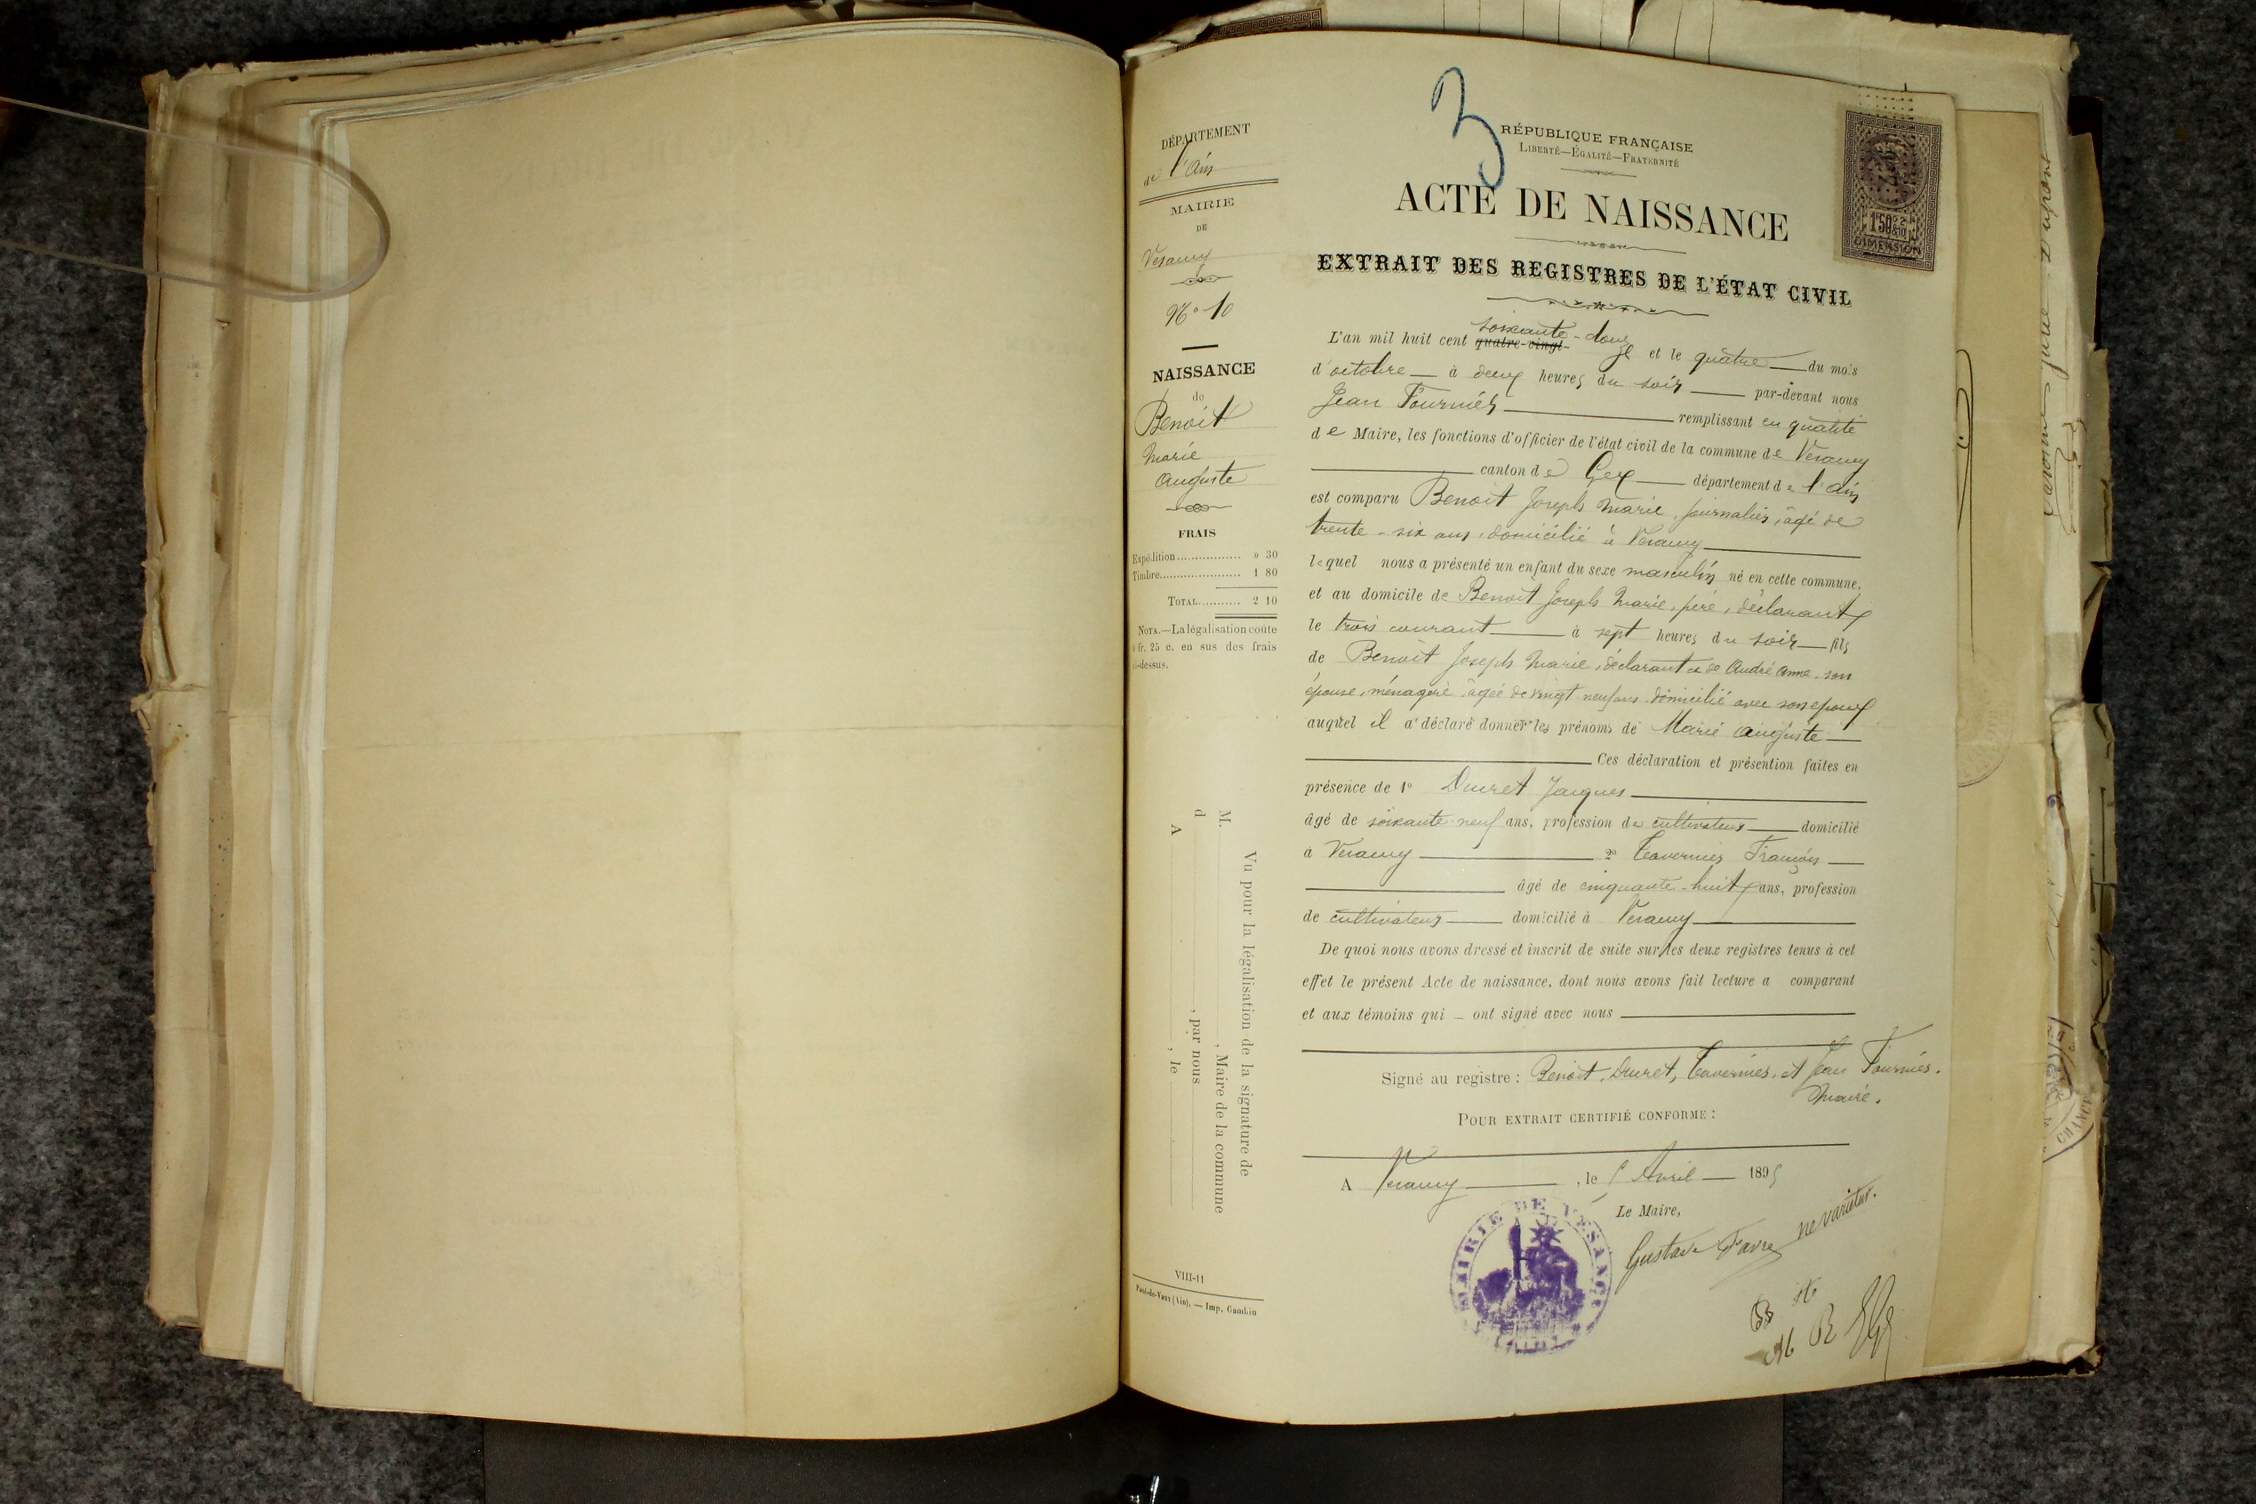 DÉPARTEMENT
de l'Ain
MAIRIE
DE
Vesancy
N° 10
NAISSANCE
de
Benoit
Marie
Auguste
FRAIS
Expédition................. » 30
Timbre....................... 1 80
TOTAL........... 2 10
NOTA.—La légalisation coûte
fr. 25 c. en sus des frais
ci-dessus.
Vu pour la légalisation de la signature de
M. , Maire de la commune
d , par nous
A , le
VIII-11
Pont-de-Vaux (Ain). — Imp. Gaudin
3
RÉPUBLIQUE FRANÇAISE
LIBERTÉ—ÉGALITÉ—FRATERNITÉ
ACTE DE NAISSANCE
EXTRAIT DES REGISTRES DE L'ÉTAT CIVIL
1F50
DIMENSION
soixante-douze
L'an mil huit cent quatre-vingt- et le quatre du mois
d'octobre à deux heures du soir par-devant nous
Jean Fournier remplissant en qualité
de Maire, les fonctions d'officier de l'état civil de la commune de Vesancy
canton de Gex département de l'Ain
est comparu Benoit Joseph Marie, journalier, âgé de
trente-six ans, domicilié à Vesancy
lequel nous a présenté un enfant du sexe masculin né en cette commune,
et au domicile de Benoit Joseph Marie, père, déclarant
le trois courant à sept heures du soir fils
de Benoit Joseph Marie, déclarant et de André Anne son
épouse, ménagère, âgée de vingt neuf ans domicilié avec son époux
auquel il a déclaré donner les prénoms de Marie Auguste
Ces déclaration et présention faites en
présence de 1° Duret Jacques
âgé de soixante-neuf ans, profession de cultivateur domicilié
à Vesancy 2° Tavernier François
âgé de cinquante-huit ans, profession
de cultivateur domicilié à Vesancy
De quoi nous avons dressé et inscrit de suite sur les deux registres tenus à cet
effet le présent Acte de naissance, dont nous avons fait lecture a comparant
et aux témoins qui ont signé avec nous
Signé au registre : Benoit, Duret, Tavernier, et Jean Fournier.
Maire.
POUR EXTRAIT CERTIFIÉ CONFORME :
A Vesancy , le 5 Avril 1895
Le Maire,
Gustave Favre
ne varietur.
MAIRIE DE VESANCY
(AIN)